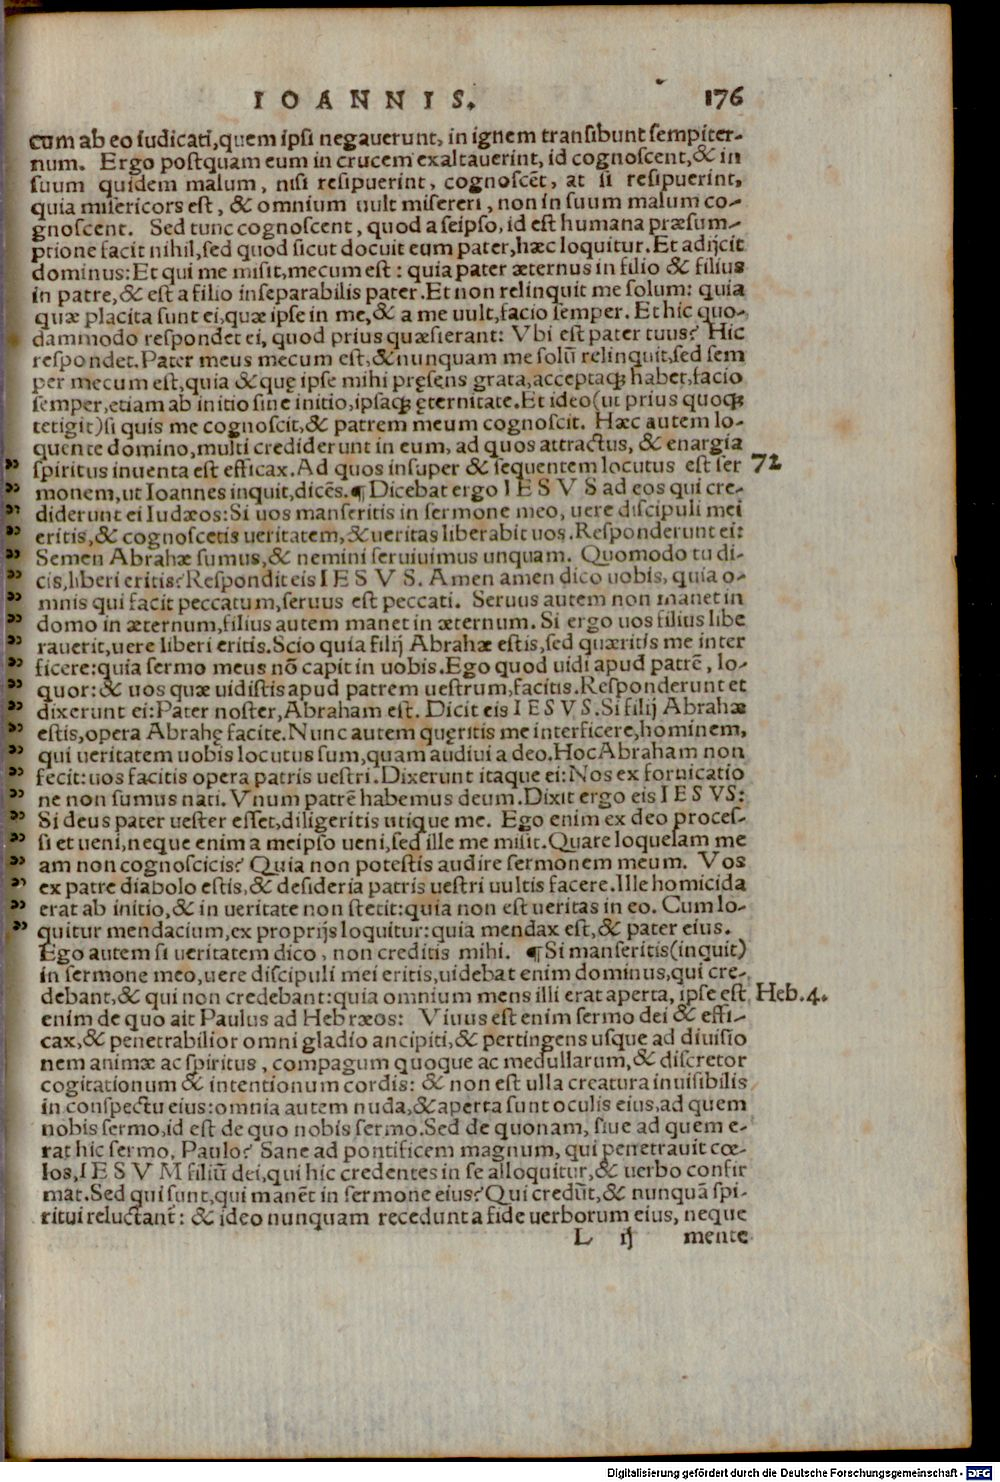 IOANNIS. 176
cum ab eo iudicati, quem ipsi negauerunt, in ignem transibunt sempiter-
num. Ergo postquam eum in crucem exaltauerint, id cognoscent, & in
suum quidem malum, nisi resipuerint, cognoscēt, at si resipuerint,
quia misericors est, & omnium uult misereri, non in suum malum co-
gnoscent. Sed tunc cognoscent, quod a seipso, id est humana præsum-
ptione facit nihil, sed quod sicut docuit eum pater, hæc loquitur. Et adijcit
dominus: Et qui me misit, mecum est: quia pater æternus in filio & filius
in patre, & est a filio inseparabilis pater. Et non relinquit me solum: quia
quæ placita sunt ei, quæ ipse in me, & a me uult, facio semper. Et hic quo-
dammodo respondet ei, quod prius quæsierant: Vbi est pater tuus? Hic
respondet. Pater meus mecum est, & nunquam me solū relinquit, sed sem
per mecum est, quia & quę ipse mihi pręsens grata, acceptaq́; habet, facio
semper, etiam ab initio sine initio, ipsaq́; ęternitate. Et ideo (ut prius quoq́;
tetigit) si quis me cognoscit, & patrem meum cognoscit. Hæc autem lo-
quente domino, multi crediderunt in eum, ad quos attractus, & enargia
spiritus inuenta est efficax. Ad quos insuper & sequentem locutus est ser 72
monem, ut Ioannes inquit, dicēs. ¶ Dicebat ergo IESVS ad eos qui cre-
diderunt ei Iudæos: Si uos manseritis in sermone meo, uere discipuli mei
eritis, & cognoscetis ueritatem, & ueritas liberabit uos. Responderunt ei:
Semen Abrahæ sumus, & nemini seruiuimus unquam. Quomodo tu di-
cis, liberi eritis? Respondit eis IESVS. Amen amen dico uobis, quia o-
mnis qui facit peccatum, seruus est peccati. Seruus autem non manet in
domo in æternum, filius autem manet in æternum. Si ergo uos filius libe
rauerit, uere liberi eritis. Scio quia filij Abrahæ estis, sed quæritis me inter
ficere: quia sermo meus nō capit in uobis. Ego quod uidi apud patrē, lo-
quor: & uos quæ uidistis apud patrem uestrum, facitis. Responderunt et
dixerunt ei: Pater noster, Abraham est. Dicit eis IESVS. Si filij Abrahæ
estis, opera Abrahę facite. Nunc autem quęritis me interficere, hominem,
qui ueritatem uobis locutus sum, quam audiui a deo. Hoc Abraham non
fecit: uos facitis opera patris uestri. Dixerunt itaque ei: Nos ex fornicatio
ne non sumus nati. Vnum patrē habemus deum. Dixit ergo eis IESVS:
Si deus pater uester esset, diligeritis utique me. Ego enim ex deo proces-
si et ueni, neque enim a meipso ueni, sed ille me misit. Quare loquelam me
am non cognoscicis? Quia non potestis audire sermonem meum. Vos
ex patre diabolo estis, & desideria patris uestri uultis facere. Ille homicida
erat ab initio, & in ueritate non stetit: quia non est ueritas in eo. Cum lo-
quitur mendacium, ex proprijs loquitur: quia mendax est, & pater eius.
Ego autem si ueritatem dico, non creditis mihi. ¶ Si manseritis (inquit)
in sermone meo, uere discipuli mei eritis, uidebat enim dominus, qui cre-
debant, & qui non credebant: quia omnium mens illi erat aperta, ipse est Heb. 4.
enim de quo ait Paulus ad Hebræos: Viuus est enim sermo dei & effi-
cax, & penetrabilior omni gladio ancipiti, & pertingens usque ad diuisio
nem animæ ac spiritus, compagum quoque ac medullarum, & discretor
cogitationum & intentionum cordis: & non est ulla creatura inuisibilis
in conspectu eius: omnia autem nuda, & aperta sunt oculis eius, ad quem
nobis sermo, id est de quo nobis sermo. Sed de quonam, siue ad quem e-
rat hic sermo, Paulo? Sane ad pontificem magnum, qui penetrauit cœ-
los, IESVM filiū dei, qui hic credentes in se alloquitur, & uerbo confir
mat. Sed qui sunt, qui manēt in sermone eius? Qui credūt, & nunquā spi-
ritui reluctant: & ideo nunquam recedunt a fide uerborum eius, neque
L ij mente
Digitalisierung gefördert durch die Deutsche Forschungsgemeinschaft - DFG